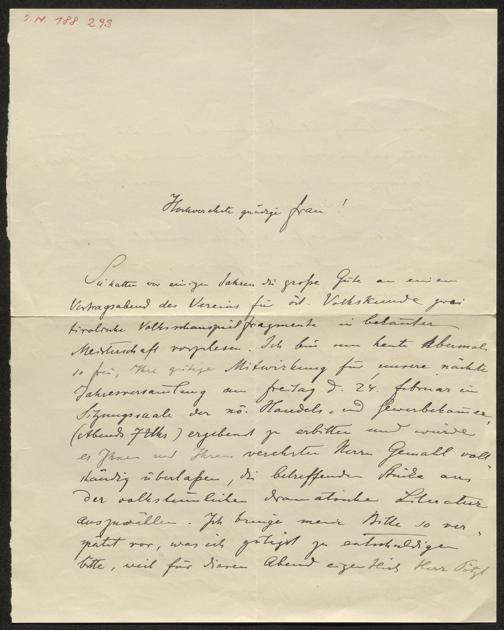 J.N. 188.293
Hochverehrte gnädige Frau!
Sie hatten vor einigen Jahren die große Güte an einem
Vortragsabend des Vereins für öst. Volkskunde zwei
tirolische Volksschauspielfragmente in bekannter
Meisterschaft vorzulesen. Ich bin nun heute abermals
so frei, Ihre gütige Mitwirkung für unsere nächste
Jahresversammlung am Freitag d. 24. Februar im
Sitzungssaale der nö. Handels- und Gewerbekammer,
(Abends 7 Uhr) ergebenst zu erbitten und würde
es Ihnen und Ihrem verehrten Herrn Gemahl voll-
ständig überlaßen, die betreffenden Stücke aus
der volkstümlichen dramatischen Literatur
auszuwählen. Ich bringe meine Bitte so ver-
spätet vor, was ich gütigst zu entschuldigen
bitte, weil für diesen Abend eigentlich Herr Pötzl